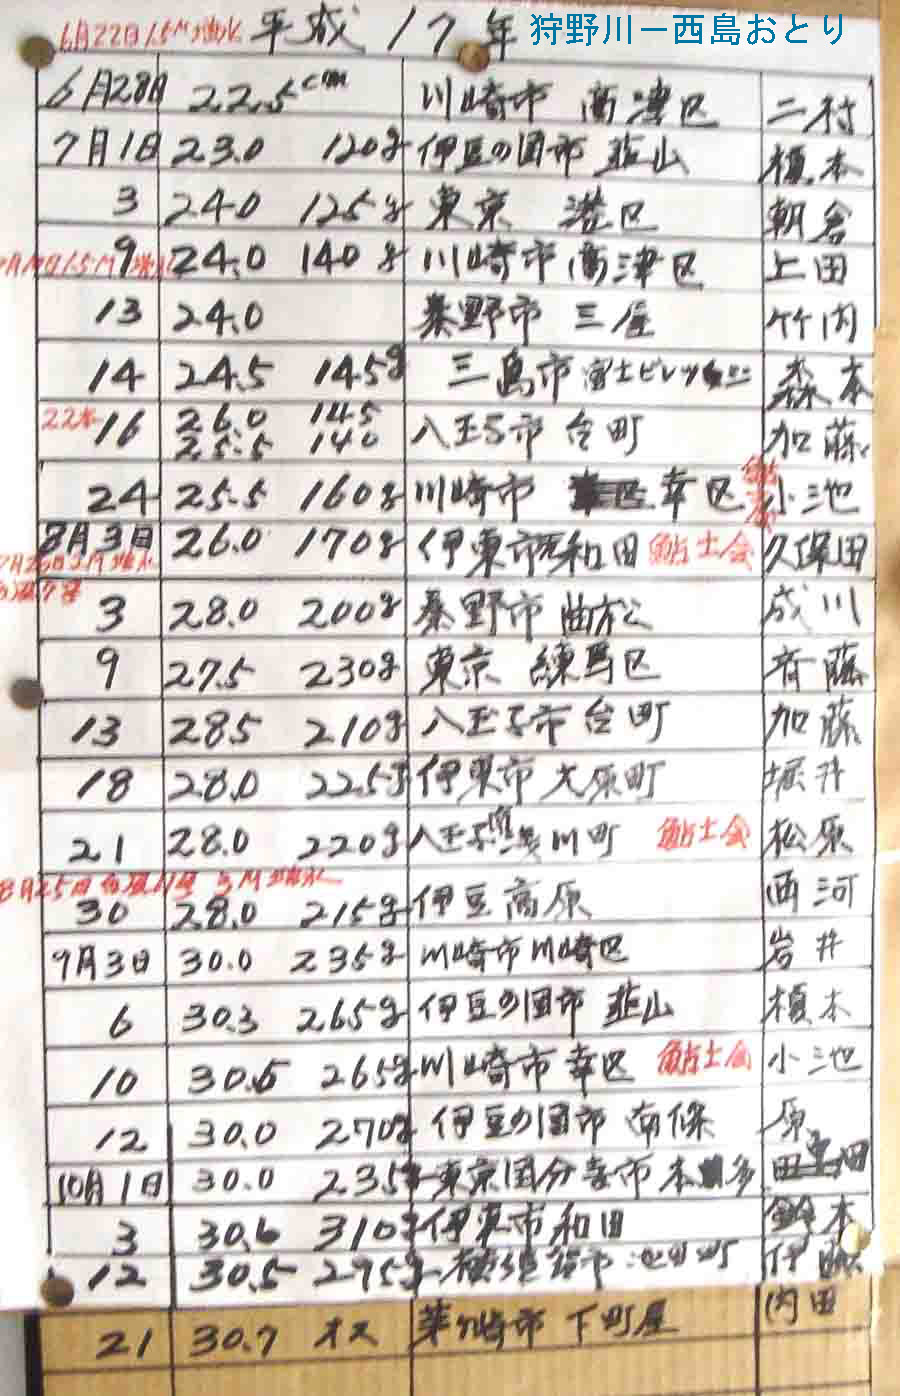 6月22日1.5M増水 平成17年 狩野川ー西島おとり
6月28日 22.5cm 川崎市 高津区 二村
7月1日 23.0 120g 伊豆の国市 韮山 榎本
3 24.0 125g 東京 港区 朝倉
9 24.0 140g 川崎市高津区 上田
13 24.0 秦野市 三屋 竹内
14 24.5 145g 三島市 富士ビレッジ 森本
22本
16 26.0 145 八王子市 台町 加藤
25.5 140
24 25.5 160g 川崎市 幸区 小池
8月3日 26.0 170g 伊東市 和田 鮎士会 久保田
3 28.0 200g 秦野市 曲松 成川
9 27.5 230g 東京 練馬区 斉藤
13 285 210g 八王子市台町 加藤
18 28.0 225g 伊東市 大原町 堀井
21 28.0 220g 八王子 川町 鮎士会 松原
8月25日台風11号 3M増水
30 28.0 215g 伊豆高原 西河
9月3日 30.0 235g 川崎市川崎区 岩井
6 30.3 265g 伊豆の国市 韮山 榎本
10 30.5 265g 川崎市 幸区 鮎士会 小池
12 30.0 270g 伊豆の国市 南條 原
10月1日 30.0 235g 東京国分寺市 本多
3 30.6 310g 伊東市 和田 鈴木
12 30.5 295g 横須賀市 伊藤
21 30.7 オス 茅ヶ崎市 下町屋 内田